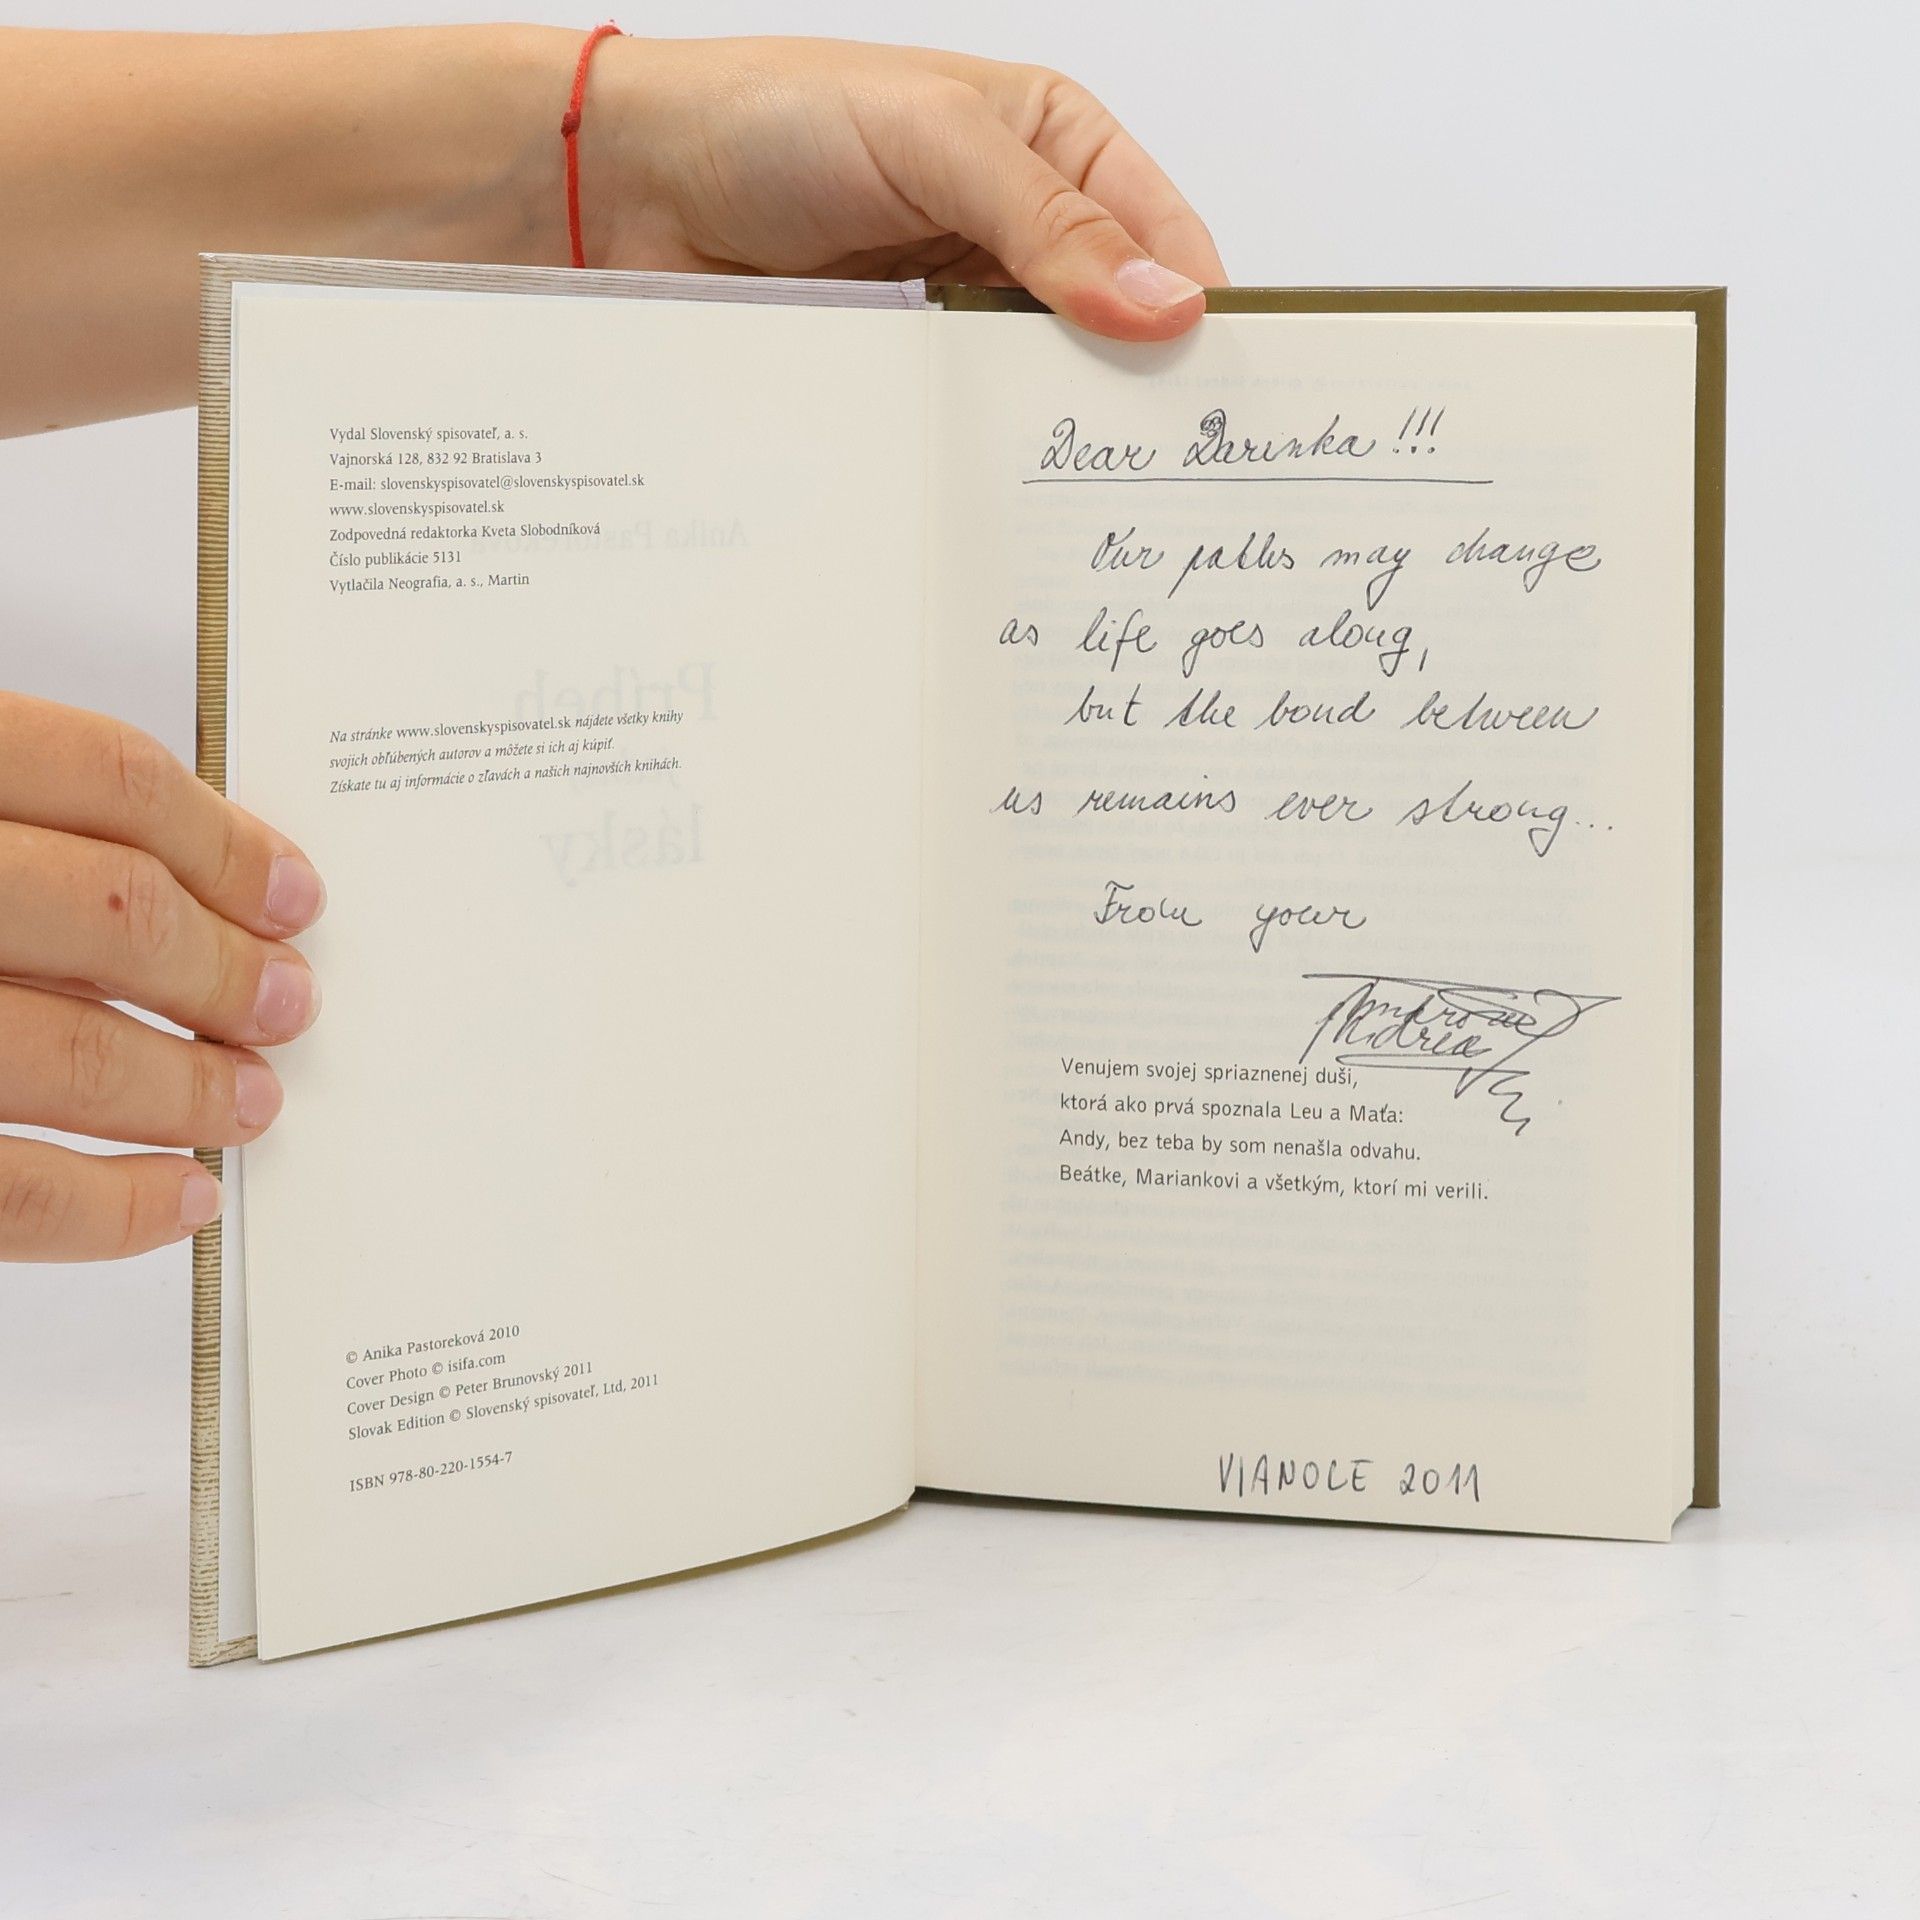 Vydal Slovenský spisovateľ, a. s.
Vajnorská 128, 832 92 Bratislava 3
E-mail: slovenskyspisovatel@slovenskyspisovatel.sk
www.slovenskyspisovatel.sk
Zodpovedná redaktorka Kveta Slobodníková
Číslo publikácie 5131
Vytlačila Neografia, a. s., Martin
Na stránke www.slovenskyspisovatel.sk nájdete všetky knihy
svojich obľúbených autorov a môžete si ich aj kúpiť.
Získate tu aj informácie o zľavách a našich najnovších knihách.
© Anika Pastoreková 2010
Cover Photo © isifa.com
Cover Design © Peter Brunovský 2011
Slovak Edition © Slovenský spisovateľ, Ltd, 2011
ISBN 978-80-220-1554-7
Dear Darinka !!!
Our paths may change
as life goes along,
but the bond between
us remains ever strong...
From your
Andrea
Venujem svojej spriaznenej duši,
ktorá ako prvá spoznala Leu a Maťa:
Andy, bez teba by som nenašla odvahu.
Beátke, Mariankovi a všetkým, ktorí mi verili.
VIANOCE 2011